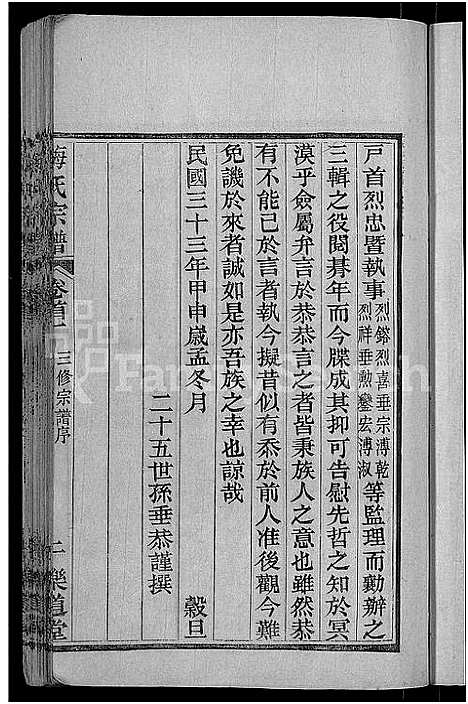 戸首烈忠暨執事烈鎔烈喜垂宗溥乾烈祥垂勲鑾宏溥淑等監理而勷辦之
三輯之役閱朞年而今牒成其抑可告慰先哲之知於冥
漠乎僉屬弁言於恭恭言之者皆秉族人之意也雖然恭
有不能已於言者執今擬昔似有忝於前人准後觀今難
免譏於來者誠如是亦吾族之幸也諒哉
民國三十三年甲申歲孟冬月 穀旦
二十五世孫垂恭謹撰
梅氏宗譜 卷首 三修宗譜序 二 樂道堂
FamilySearch